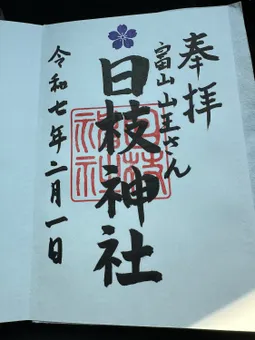 奉拝
富山山王さん
日枝神社
日枝神社
令和七年二月一日